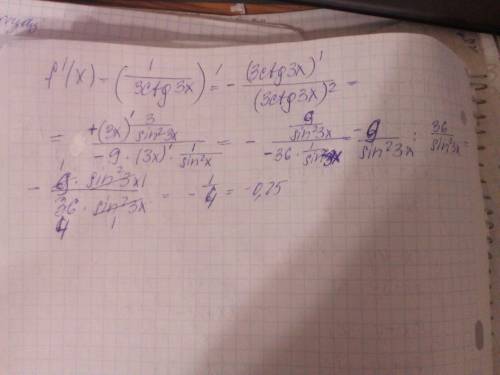 f'(x) = (1/(3ctg3x))' = - (3ctg3x)'/(3ctg3x)² =
= +(3x)' 3/sin²3x / -9·(3x)'·1/sin²x = - 9/sin²3x / -36·1/sin²3x = -9/sin²3x : 36/sin²3x =
- 9·sin²3x/36·sin²3x = -1/4 = -0,25